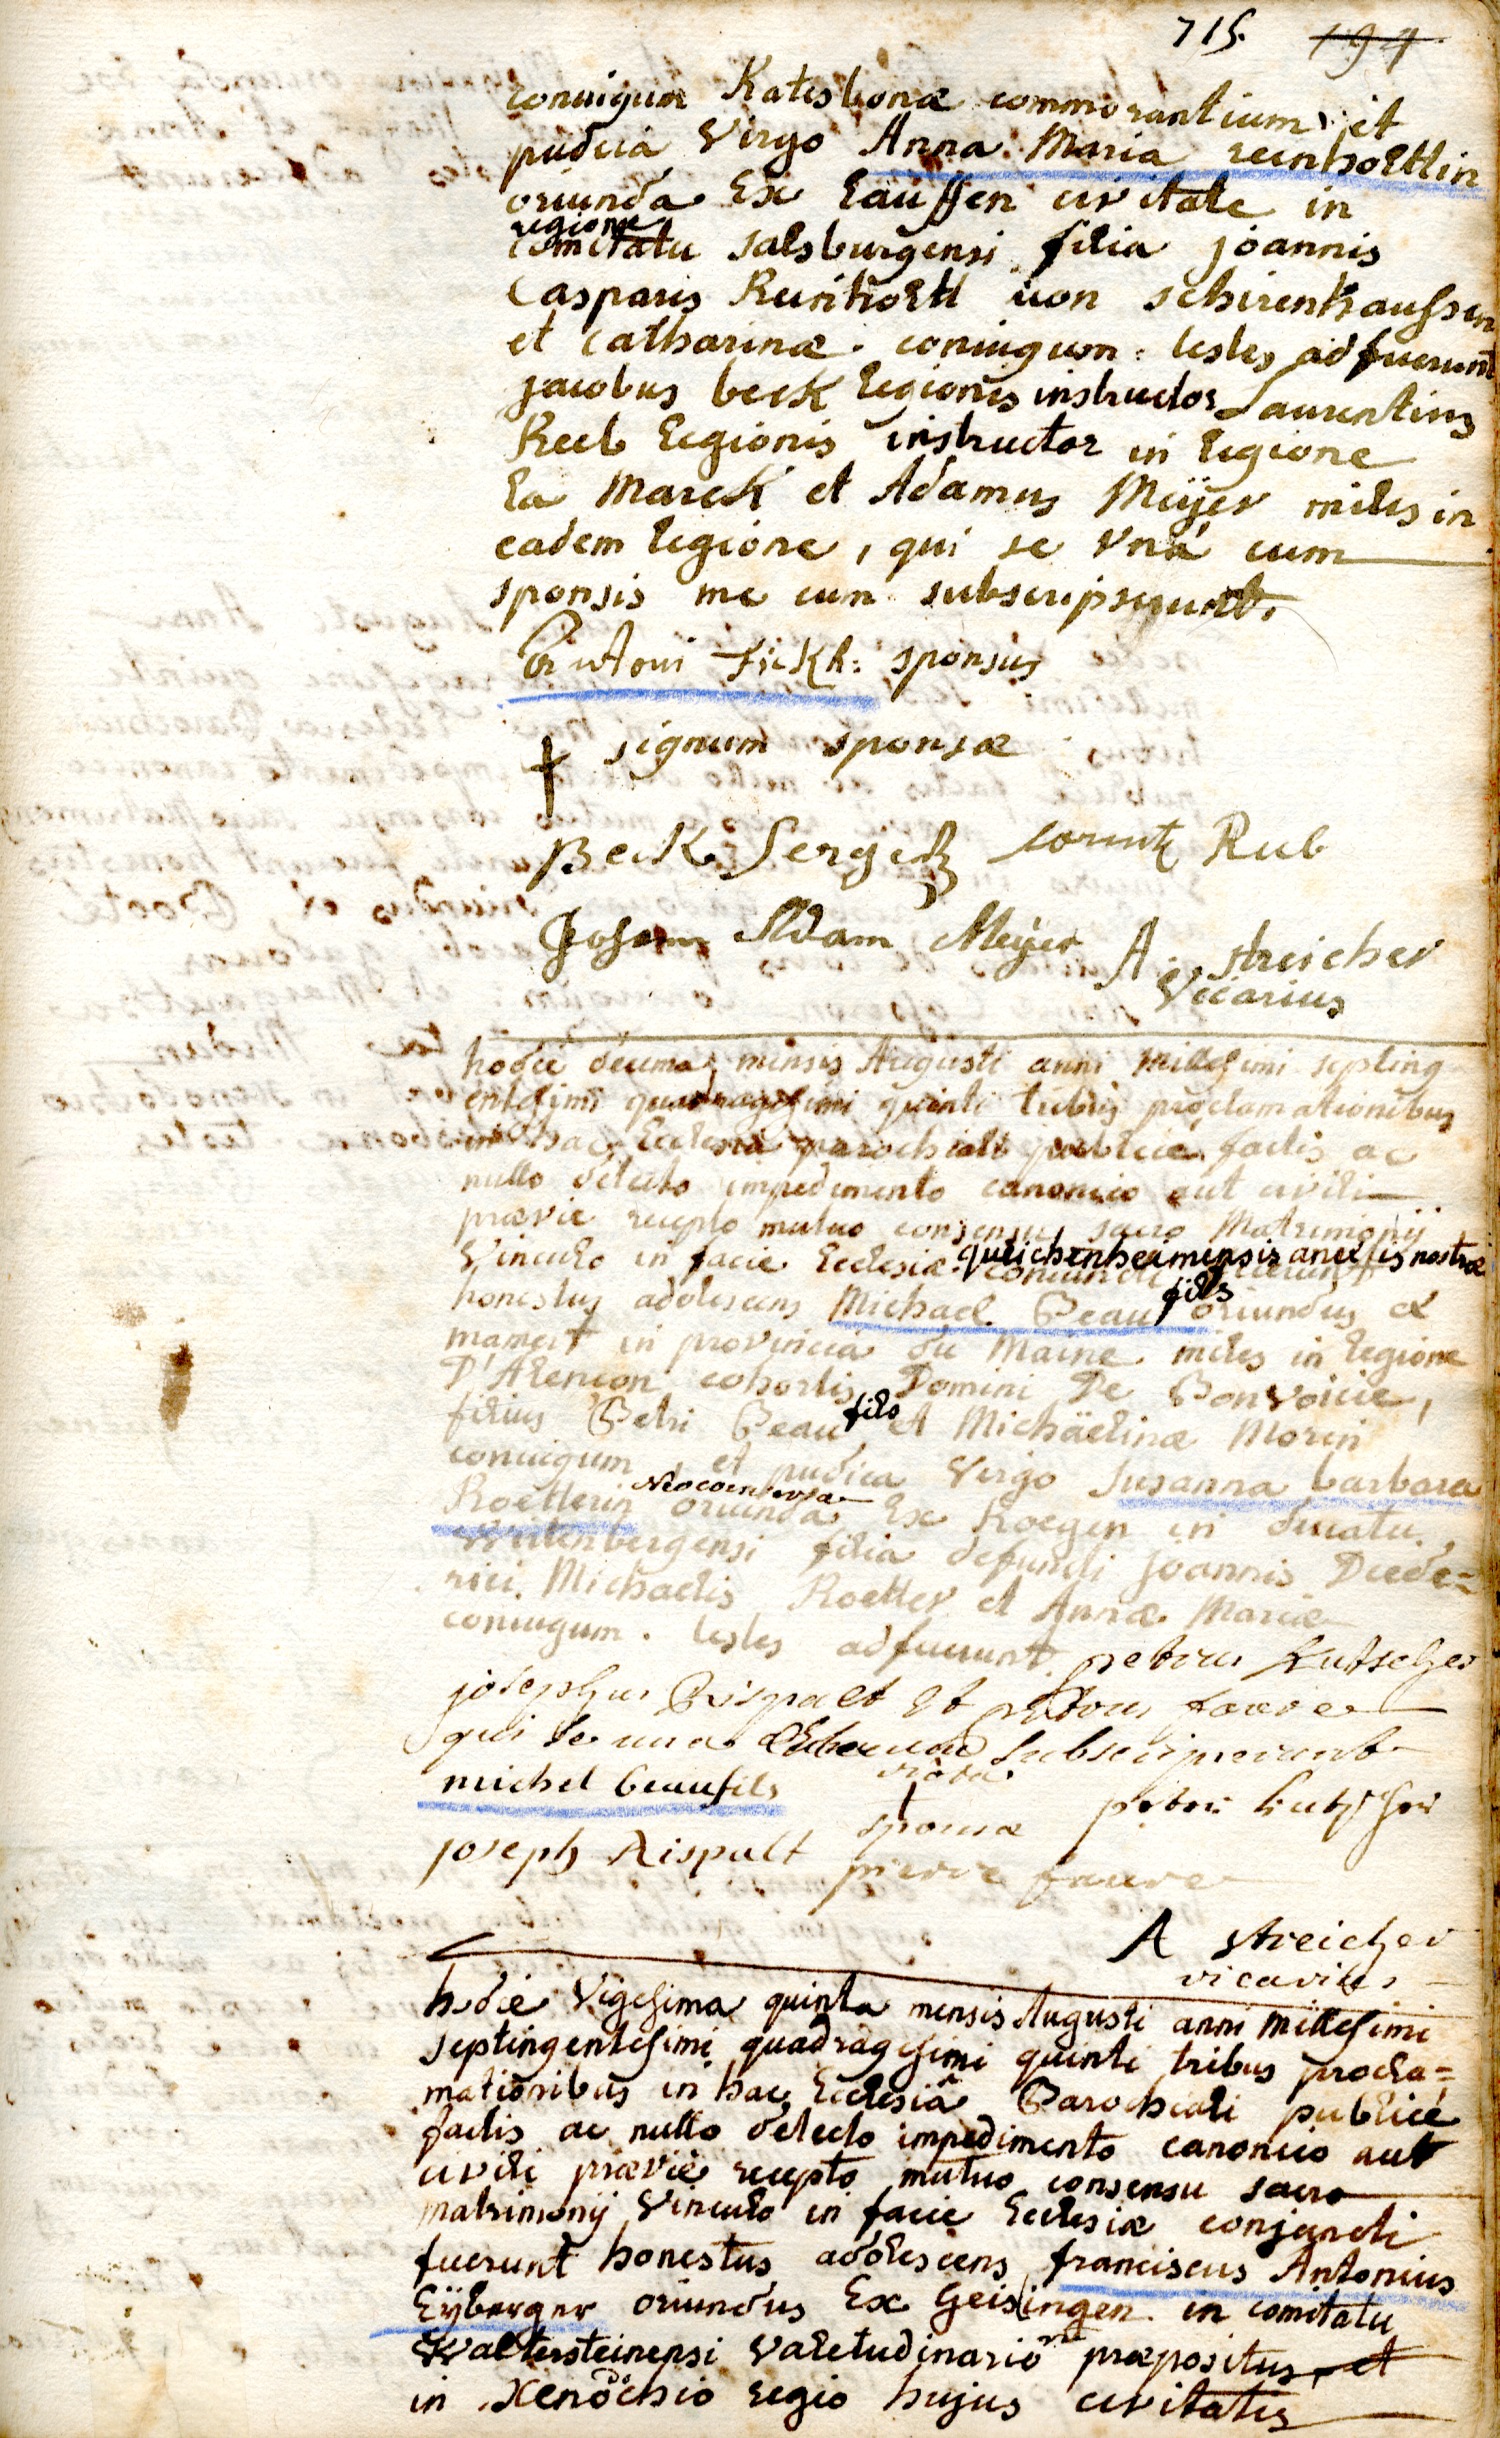 715. 194
coniugum Ratisbonæ commorantium, et
pudica Virgo Anna Maria reinholtlin
oriunda Ex Lauffen civitate in
regione
comitatu salsburgensi filia joannis
Casparis Reinholtl von schirenhaussen
et Catharinæ coniugum : testes adfuerunt
jacobus beck legionis instructor Laurentius
Reeb legionis instructor in legione
la Marck et Adamus Meÿer miles in
eadem legione, qui se Vná cum
sponsis me cum subscripserunt.
Antoni Fickh: sponsus
† signum sponsæ
Beck Sergi Rub
Johann Adam Meÿer A. streicher
Vicarius
hodie decima mensis Augusti anni Millesimi septing
entesimi quadragesimi quinti tribus proclamationibus
in hac Ecclesia parochiali publice factis ac
nullo detecto impedimento canonico aut civili
prævie recepto mutuo consensu sacro Matrimonÿ
Vinculo in facie Ecclesiæ quelichenheimensis anexæ nostræ
coniuncti fuerunt
honestus adolescens Michael Beau fils oriundus ex
mamert in provincia du Maine miles in legione
D'Alencon cohortis Domini De Bonvoicie,
filius Petri Beau fils et Michäelinæ Morin
coniugum, et pudica Virgo Susanna barbara
Neoconversa
Roetterin oriunda Ex Roegen in ducatu
Wirtenbergensi filia defuncti joannis Diede=
rici Michaelis Roetter et Annæ Mariæ
coniugum. testes adfuerunt petrus kutscher
josephus Rispalt et petrus faure
qui se una mecum subscripserunt
michel beaufils nota † sponsæ peter kutscher
joseph Rispalt pierre faure
A streicher
vicarius
hodie Vigesima quinta mensis Augusti anni Millesimi
septingentesimi quadragesimi quinti tribus procla=
mationibus in hac Ecclesiâ Parochiali publicé
factis ac nullo detecto impedimento canonico aut
civili præviè recepto mutuo consensu sacro
matrimonÿ Vinculo in facie Ecclesiæ conjuncti
fuerunt honestus adolescens franciscus Antonius
Eÿberger oriundus Ex Geislingen in comitatu
Wallersteinensi Valetudinario præpositus et
in Xenodochio regio hujus civitatis